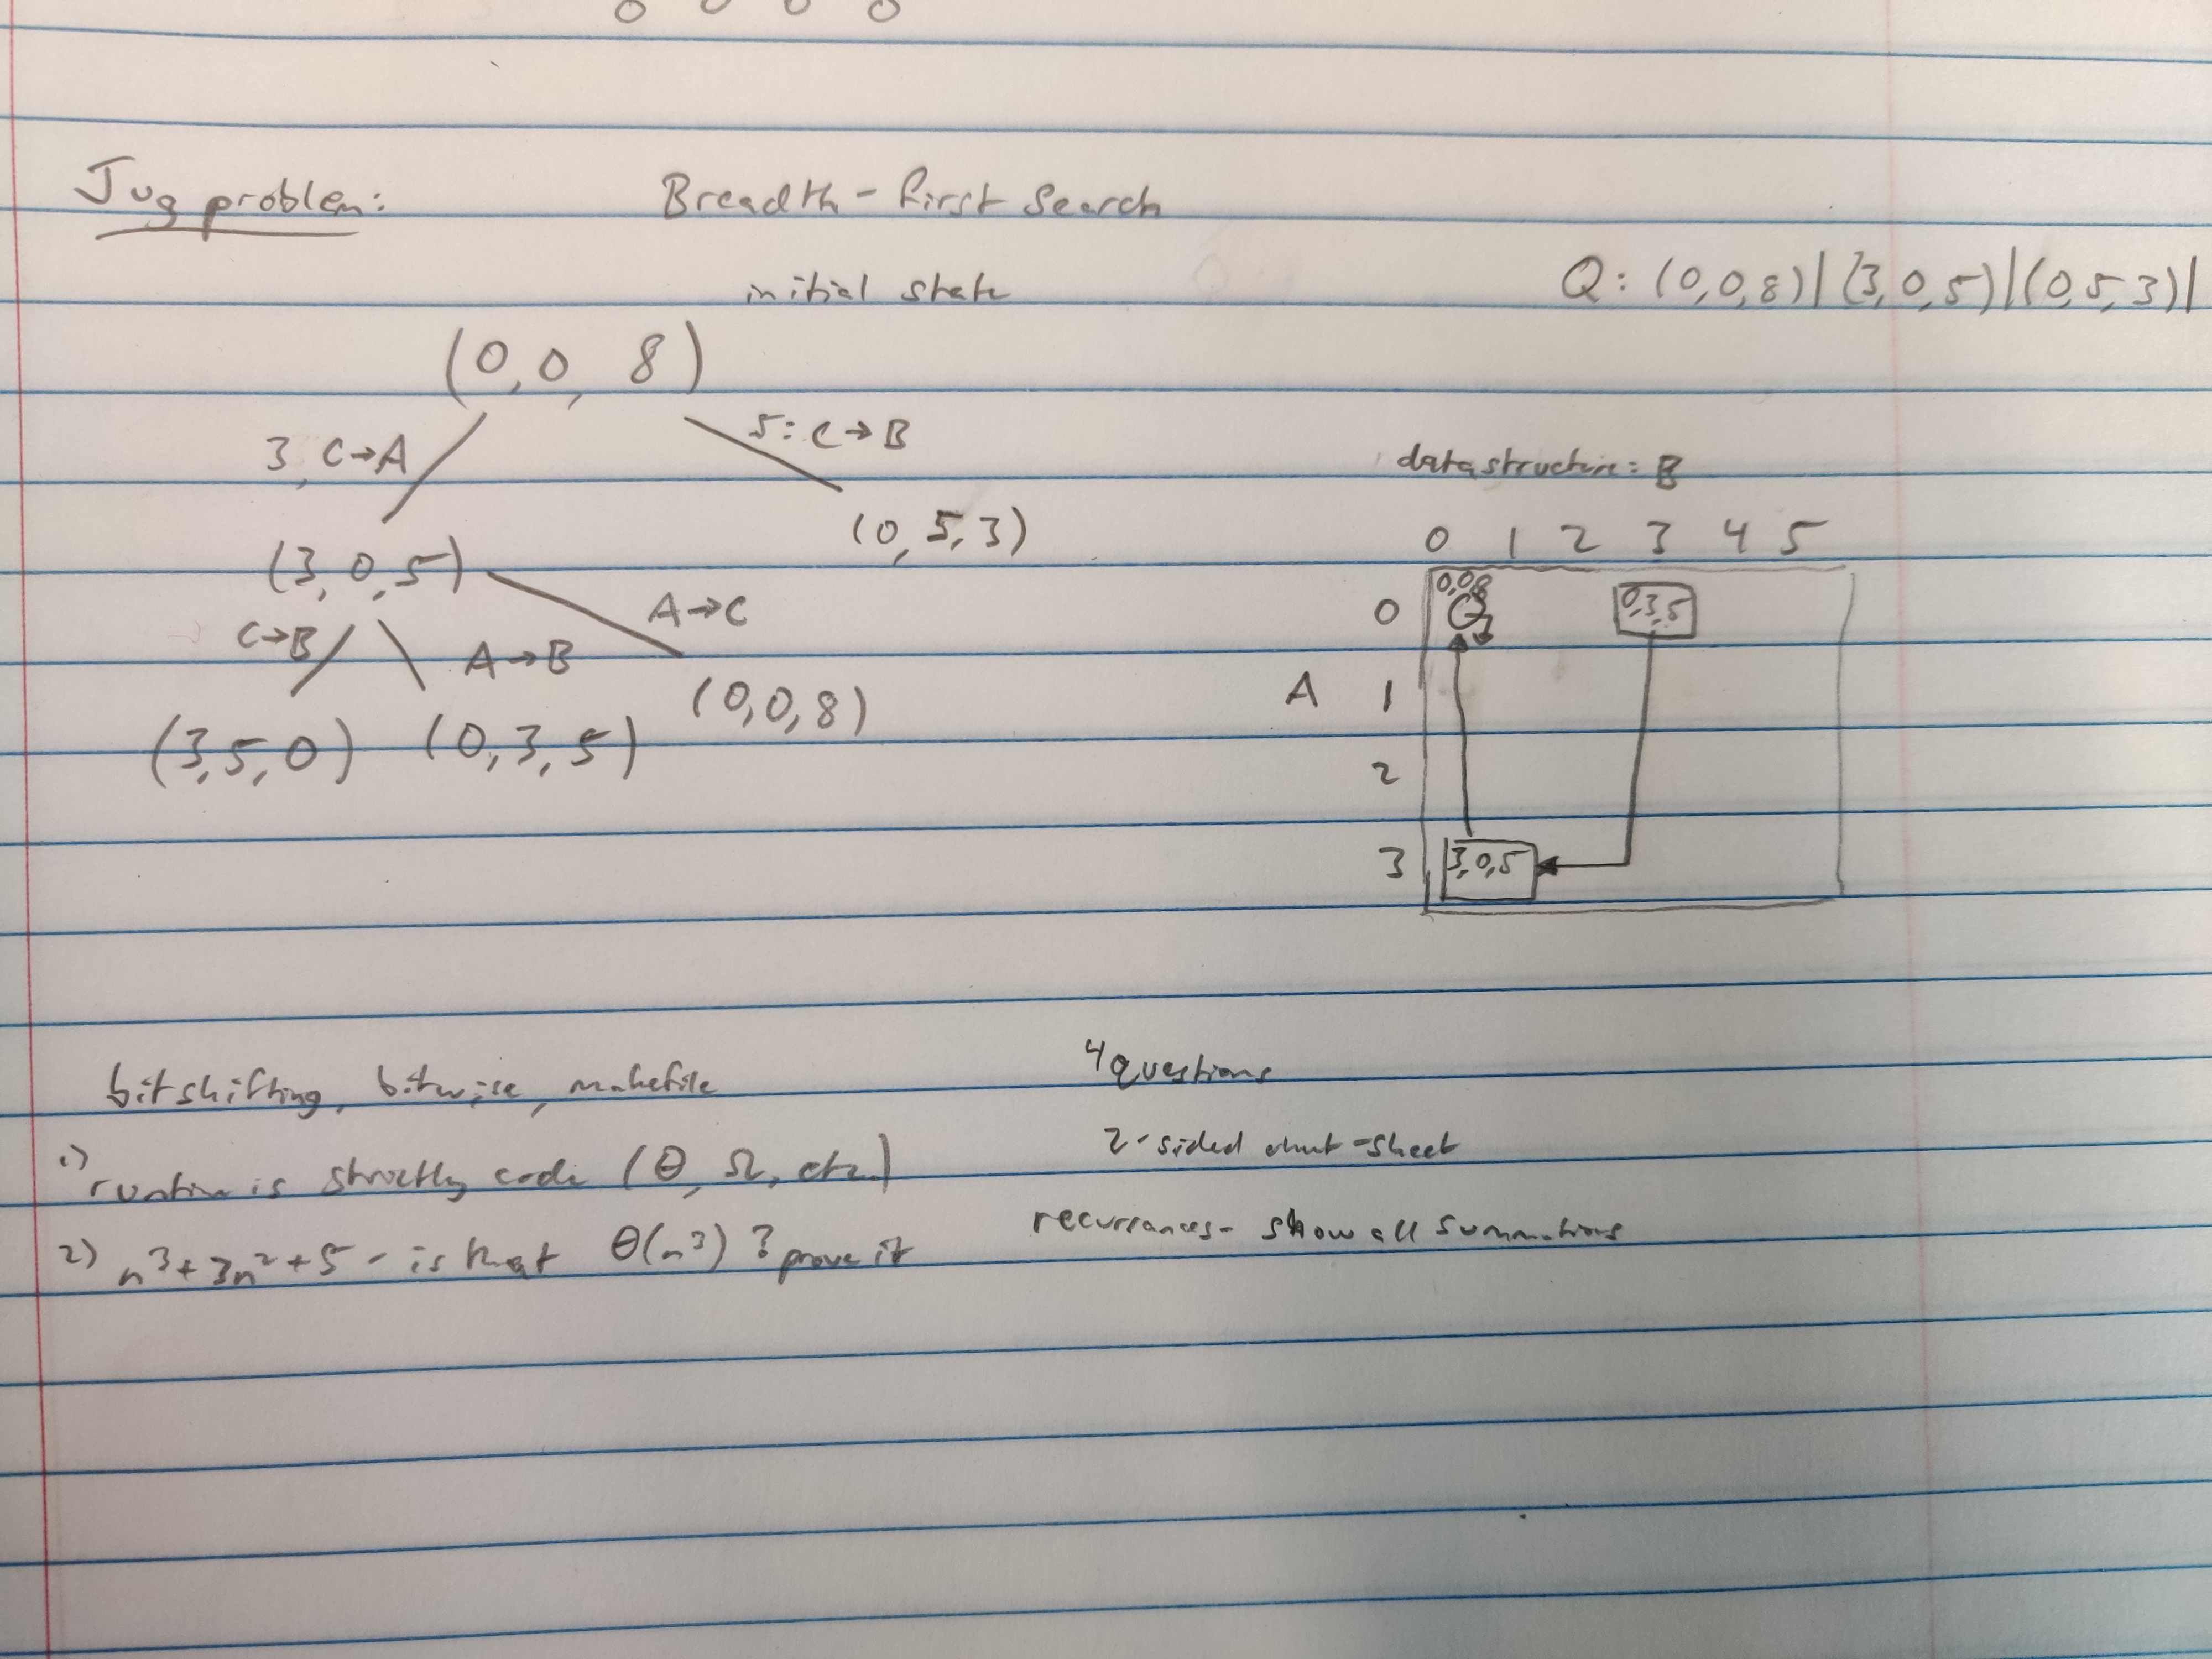 0 0 0 0
Jug problem: Breadth-first Search
initial state
Q: (0,0,8)|(3,0,5)|(0,5,3)|
(0,0, 8)
3, C→A
5: C→B
(3,0,5)
(0,5,3)
C→B
A→B
A→C
(3,5,0) (0,3,5) (0,0,8)
datastructure: B
0 1 2 3 4 5
0 0,0,8 0,3,5
A 1
2
3 3,0,5
bitshifting, bitwise, makefile
1) runtime is strictly code (Θ, Ω, etc.)
2) n³+3n²+5 - is that Θ(n³) ? prove it
4 questions
2-sided sheet
recurrances- show all summations